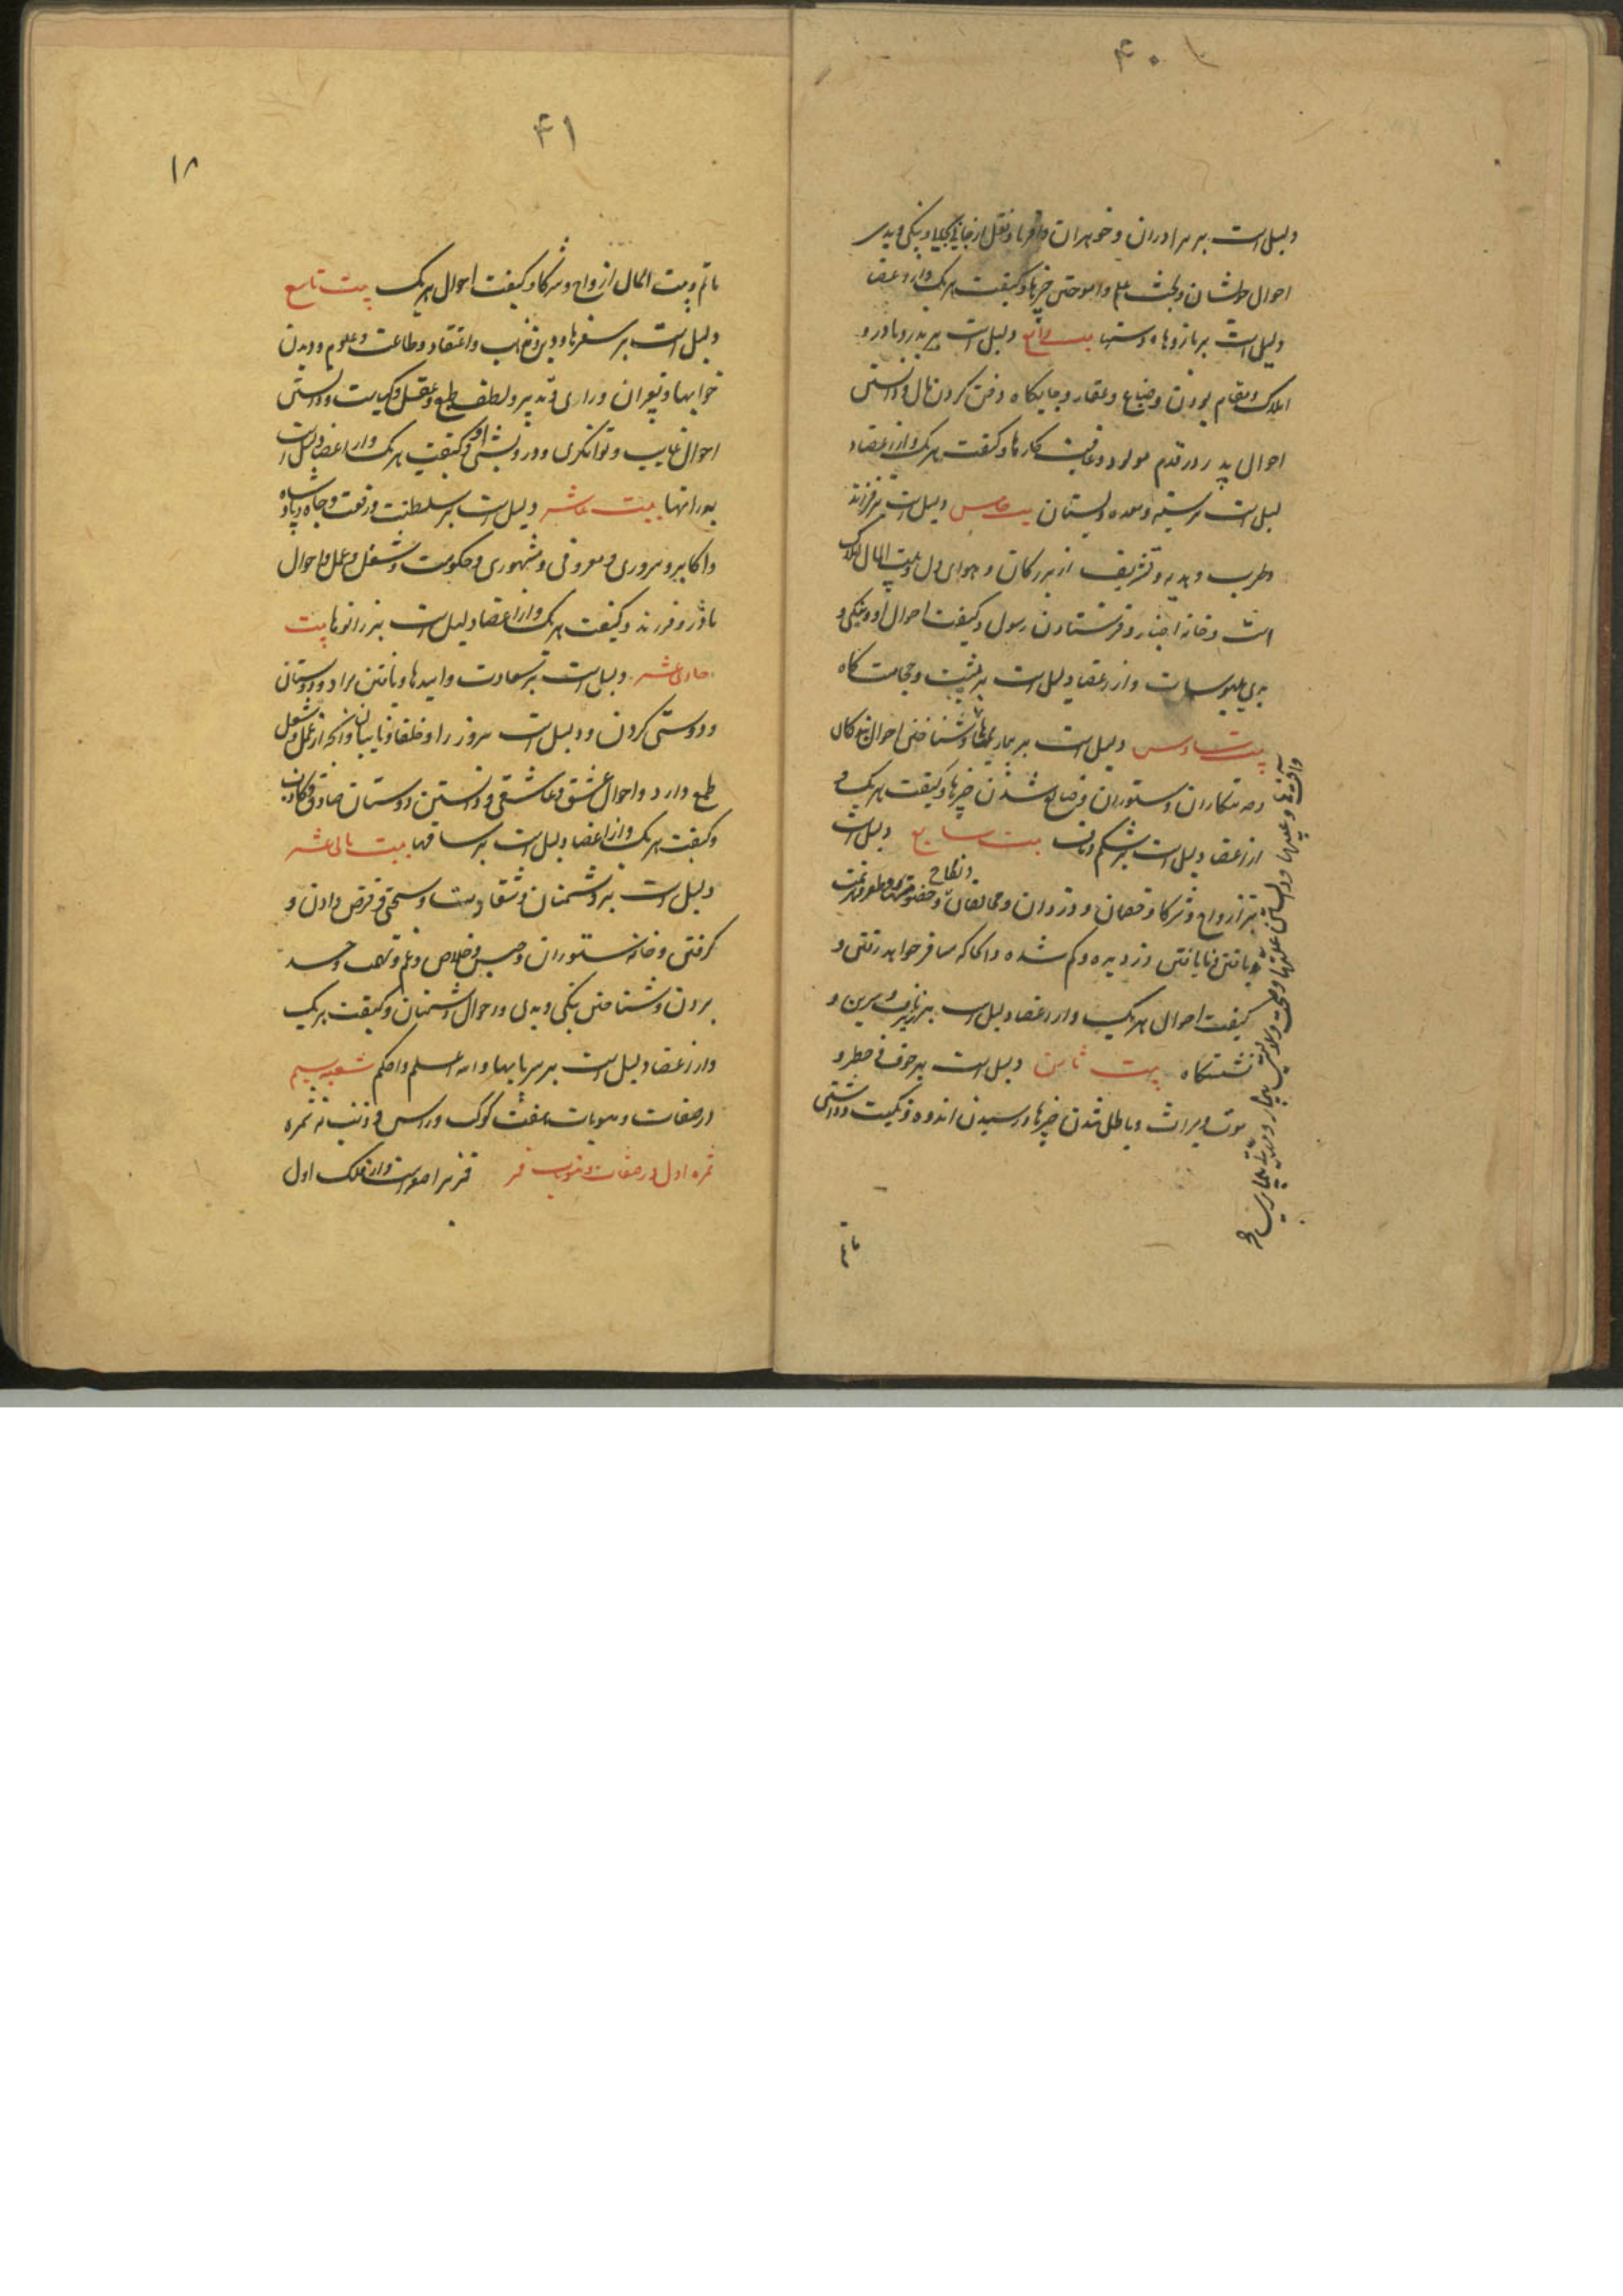 ۴۰
دلیل است بر برادران و خواهران و اقربا و نقل از جای بجای و نیکی و بدی
احوال خویشان و بحث علم و آموختن چیزها و کیفیت هر یک و از اعضا
دلیل است بر بازوها و دستها بیت رابع دلیل است بر پدر و مادر و
املاک و مقام بودن و ضیاع و عقار و جایگاه دفن کردن مال و دانستن
احوال پدر در قدم مولود و عاقبت کارها و کیفیت هر یک و از اعضا
دلیل است بر سینه و معده و پستان بیت خامس دلیل است بر فرزند
و طرب و هدیه و تشریف از بزرگان و هوای دل و بیت المال املاک
است و خانه اخبار و فرستادن رسول و کیفیت احوال او و نیکی و
بدی ملبوسات و از اعضا دلیل است بر پشت و حجامت گاه
بیت سادس دلیل است بر بیماریها و شناختن احوال بندگان
و خدمتکاران و ستوران و ضایع شدن چیزها و کیفیت هر یک و
از اعضا دلیل است بر شکم و ناف بیت سابع دلیل است
بر ازواج و شرکا و خصمان و دزدان و مخالفان و
و نکاح
یافتن و نایافتن دزدیده و گم شده و آنجا که مسافر خواهد رفتن و
کیفیت احوال هر یک و از اعضا دلیل است بر زیر ناف و سرین و
نشستگاه بیت ثامن دلیل است بر خوف و خطر و
موت و میراث و باطل شدن چیزها و رسیدن اندوه و نکبت و داشتن
ماتم
۴۱
۱۸
ماتم و بیت المال ازواج و شرکا و کیفیت احوال هر یک بیت تاسع
دلیل است بر سفرها و دین و مذهب و اعتقاد و طاعت و علوم و دیدن
خوابها و تعبیر آن و رای و تدبیر و لطف طبع و عقل و کیاست و راستی
احوال غایب و توانگری و درویشی او و کیفیت هر یک و از اعضا دلیل است
به رانها بیت عاشر دلیل است بر سلطنت و رفعت و جاه و پادشاه
و اکابر و سروری و معروفی و مشهوری و حکومت و شغل و عمل و احوال
مادر و فرزند و کیفیت هر یک و از اعضا دلیل است بر زانوها بیت
حادی عشر دلیل است بر سعادت و امیدها و یافتن مراد و دوستان
و دوستی کردن و دلیل است بر وزرا و خلفا و نایبان و آنچه از عمل و شغل
طمع دارد و احوال عشق و عاشقی و دانستن دوستان صادق و کاذب
و کیفیت هر یک و از اعضا دلیل است بر ساقها بیت ثانی عشر
دلیل است بر دشمنان و شقاوت و سختی و قرض دادن و
گرفتن و خانه ستوران و حبس و خلاص و غم و تعب و حسد
بردن و شناختن نیکی و بدی و احوال دشمنان و کیفیت هر یک
و از اعضا دلیل است بر سر پایها و الله اعلم و احکم شعبه سیم
در صفات و منسوبات هفت کوکب و راس و ذنب نه ثمره
ثمره اول در صفات و منسوب قمر قمر را صورت و از فلک اول